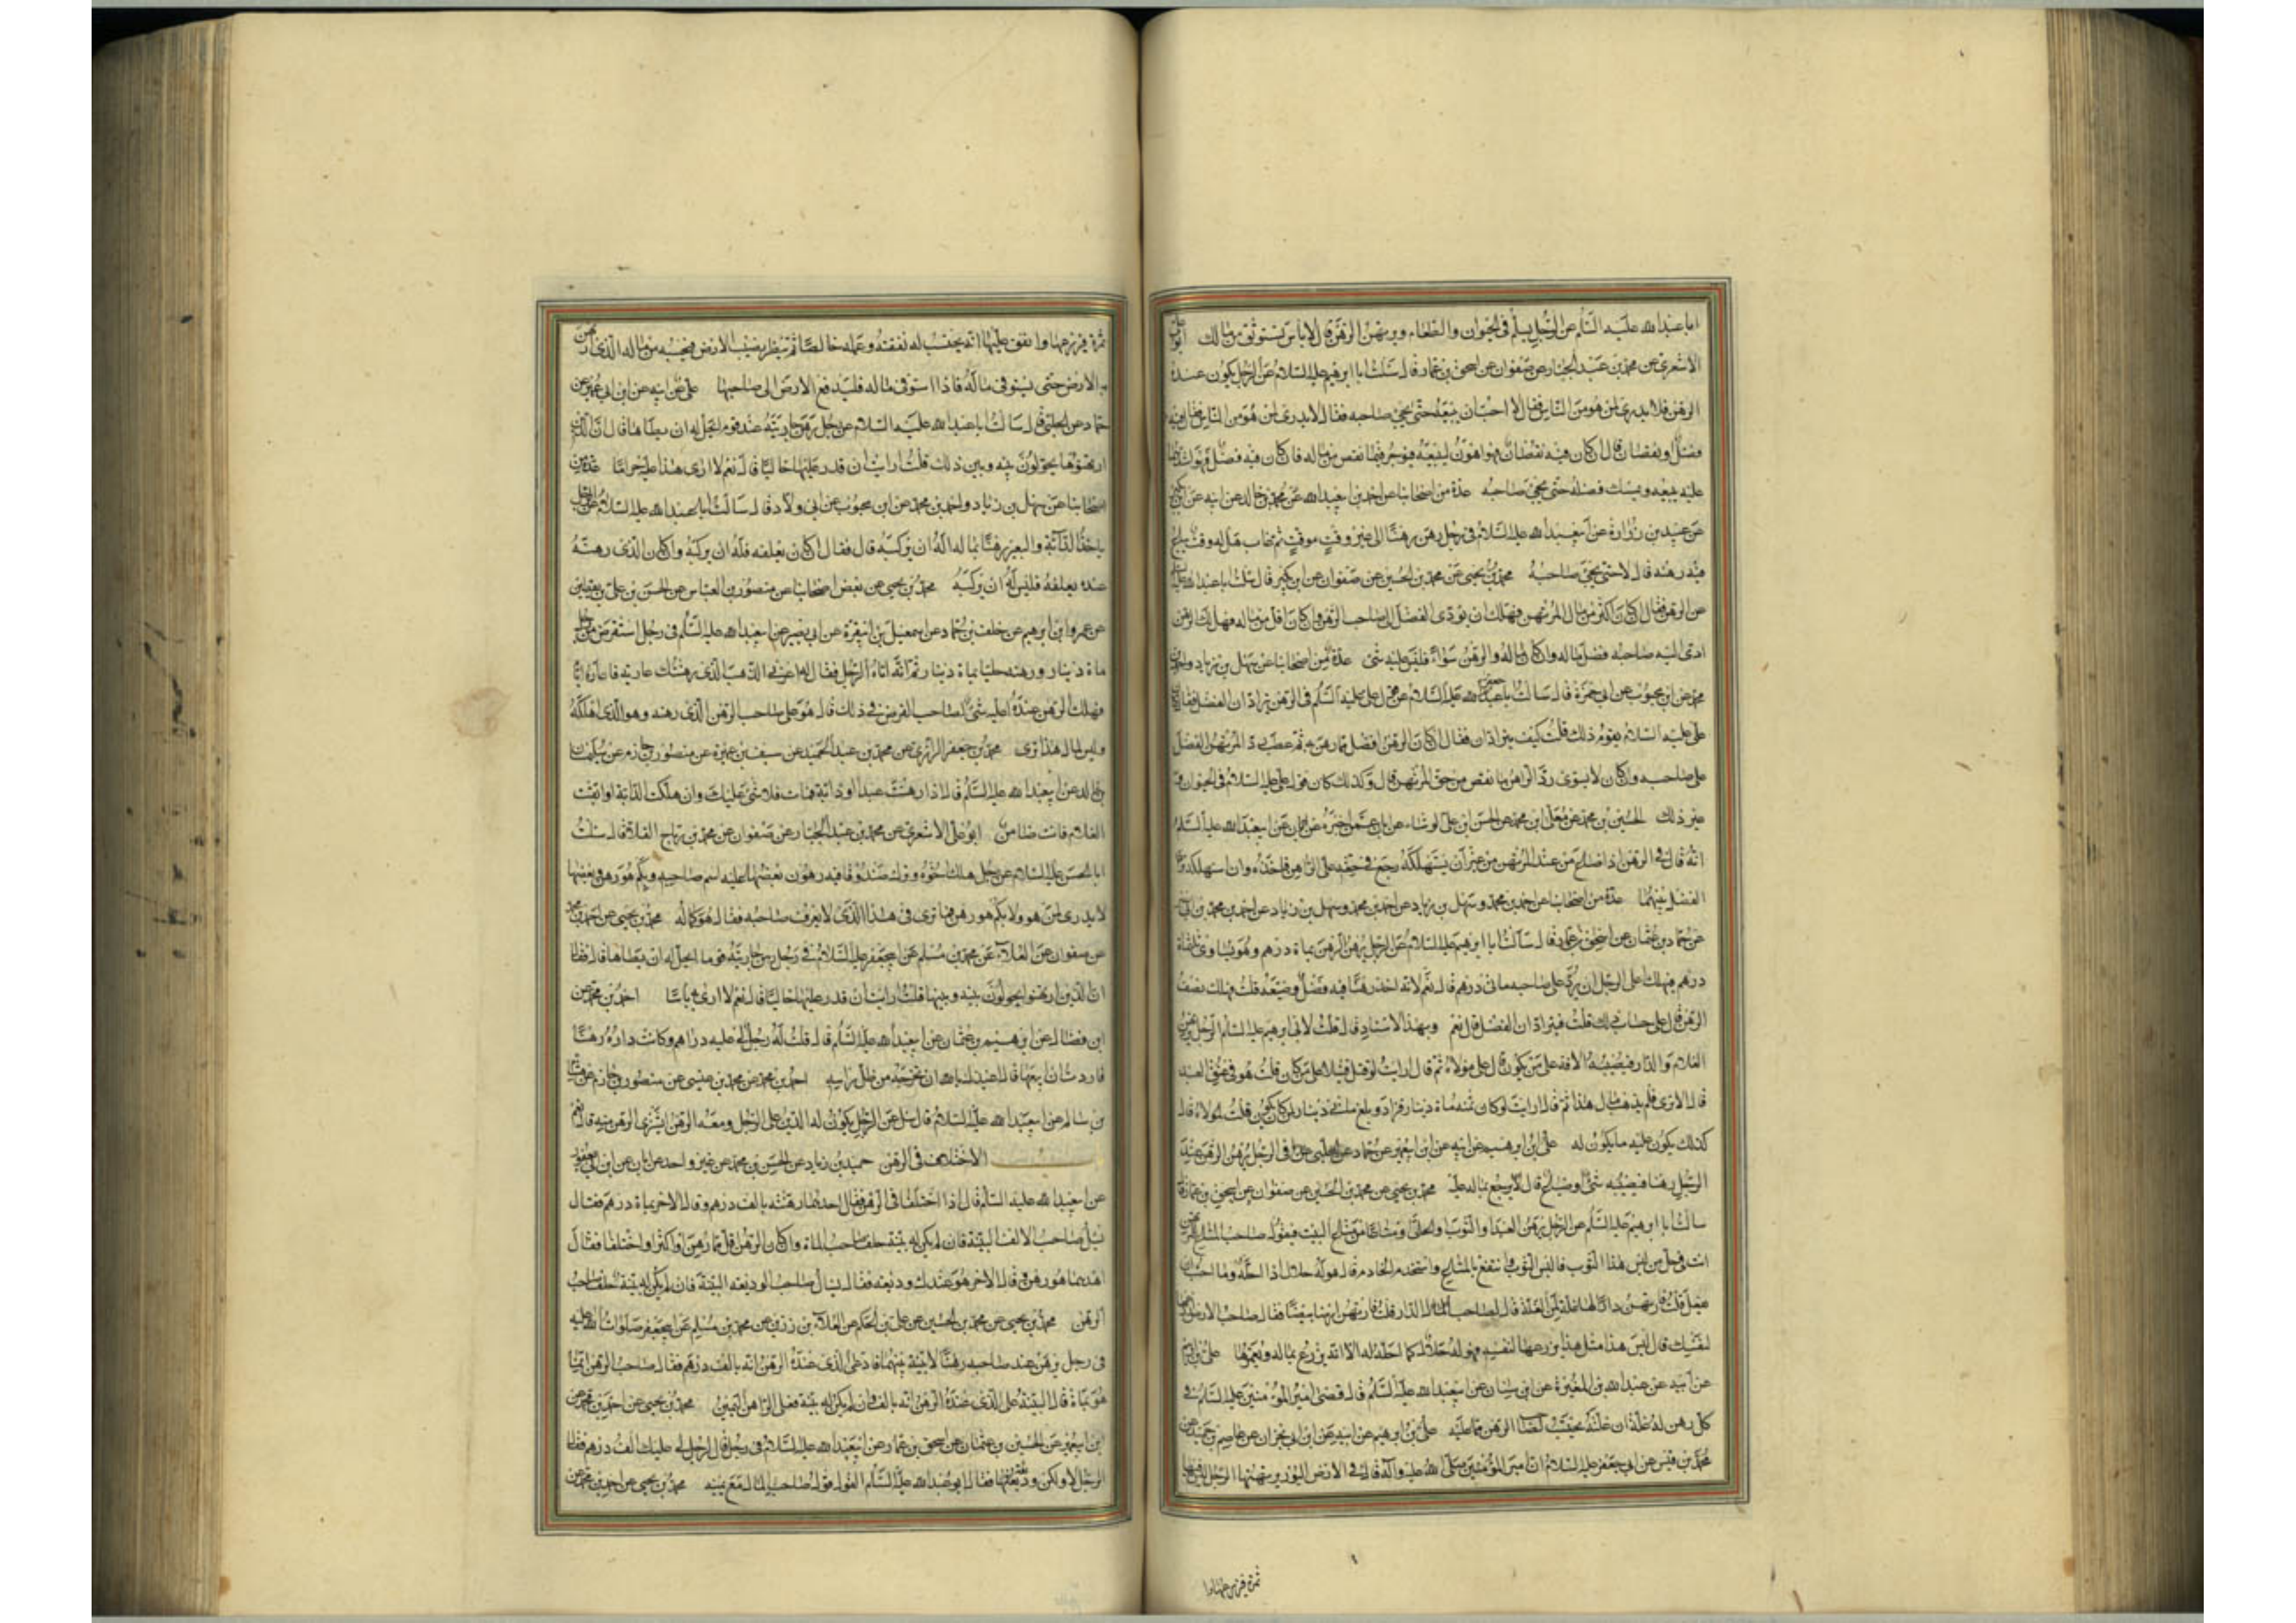 ابا عبدالله عليه السلام عن الرجل يسلم في الحيوان والطعام ويرتهن الرهن قال لا باس تستوثق من مالك ابو علي
الاشعري عن محمد بن عبد الجبار عن صفوان عن اسحق بن عمار قال سئلت ابا ابرهيم عليه السلام عن الرجل يكون عنده
الرهن فلا يدري لمن هو من الناس فقال لا احب ان يبيعه حتى يجئ صاحبه فقال لا يدري لمن هو من الناس فقال فيه
فضل او نقصان قال ان كان فيه نقصان فهو اهون لبيعه فيوجر فيما نقص من ماله فان كان فيه فضل فهو اشدهما
عليه يبيعه ويمسك فضله حتى يجئ صاحبه عدة من اصحابنا عن احمد بن ابيعبدالله عن محمد بن خالد عن ابيه عن ابن بكير
عن عبيد بن زرارة عن ابيعبدالله عليه السلام في رجل رهن رهنا الى غير وقت موقت ثم غاب هل له وقت يباع
فيه رهنه قال لا حتى يجئ صاحبه محمد بن يحيى عن محمد بن الحسين عن صفوان عن ابن بكير قال سئلت ابا عبدالله عليه السلام
عن الرهن فقال ان كان اكثر من مال المرتهن فهلك ان يؤدي الفضل الى صاحب الرهن وان كان اقل من ماله فهلك الرهن
ادى اليه صاحبه فضل ماله وان كان ماله والرهن سواء فليس عليه شئ عدة من اصحابنا عن سهل بن زياد واحمد بن
محمد عن ابن محبوب عن ابي حمزة قال سالت ابا جعفر عليه السلام عن قول علي عليه السلم في الرهن يترادان الفضل فقال كان
علي عليه السلام يقول ذلك قلت كيف يترادان فقال ان كان الرهن افضل مما رهن به ثم عطب رد المرتهن الفضل
على صاحبه وان كان لا يسوى رد الراهن ما نقص من حق المرتهن قال وكذلك كان قول علي عليه السلام في الحيوان و
غير ذلك الحسين بن محمد عن معلى ابن محمد عن الحسن ابن علي الوشاء عن ابان عمن اخبره عن ابيعبدالله عليه السلام
انه قال في الرهن اذا ضاع من عند المرتهن من غير ان يستهلكه رجع في حقه على الراهن فاخذه وان استهلكه ترادا
الفضل بينهما عدة من اصحابنا عن احمد بن محمد وسهل بن زياد عن احمد بن محمد بن ابي نصر
عن حماد بن عثمان عن اسحق بن عمار قال سالت ابا ابرهيم عليه السلام عن الرجل يرهن الرهن بماة درهم وهو يساوي ثلثماة
درهم فيهلك على الرجل ان يرد على صاحبه ماتي درهم قال نعم لانه اخذ رهنا فيه فضل وضيعه قلت فهلك نصف
الرهن قال على حساب ذلك قلت فيترادان الفضل قال نعم وبهذا الاسناد قال قلت لابي ابرهيم عليه السلم الرجل يرهن
الغلام والدار فيصيبه الافة على من يكون قال على مولاه ثم قال ارايت لو قتل قتيلا على من كان قلت هو في عنق العبد
قال الا ترى فلم يذهب مال هذا ثم قال ارايت لو كان ثمنه ماة دينار فزاد وبلغ مائتي دينار لمن كان يكون قلت لمولاه قال
كذلك يكون عليه ما يكون له علي ابن ابرهيم عن ابيه عن ابن ابيعمير عن حماد عن الحلبي في الرجل يرهن الرهن عند
الرجل رهنا فيصيبه شئ او ضاع قال يرجع بماله عليه محمد بن يحيى عن محمد بن الحسين عن صفوان عن اسحق بن عمار قال
سالت ابا ابرهيم عليه السلم عن الرجل يرهن العبد او الثوب او الحلي او متاعا من متاع البيت فيقول صاحب المتاع للمرتهن
انت في حل من لبس هذا الثوب فالبس الثوب وانتفع بالمتاع واستخدم الخادم قال هو له حلال اذا احله وما احب ان
يفعل قلت فارتهن دارا لها غلة لمن الغلة قال لصاحب الدار قلت فارتهن ارضا بيضا فقال صاحب الارض ازرعها
لنفسك قال ليس هذا مثل هذا يزرعها لنفسه فهو له حلال كما احله له الا انه يزرع بماله ويعمرها علي بن ابرهيم
عن ابيه عن عبدالله بن المغيرة عن ابن سنان عن ابيعبدالله عليه السلم قال قضى امير المؤمنين عليه السلم في
كل رهن له غلة ان غلته يحتسب لصاحب الرهن مما عليه علي بن ابرهيم عن ابيه عن ابن ابي نجران عن عاصم بن حميد عن
محمد بن قيس عن ابي جعفر عليه السلام ان امير المؤمنين صلى الله عليه واله قال في الارض البور يرتهنها الرجل ليس فيها
ثمرة فيزرعها وا
ثمرة فيزرعها وانفق عليها انه يحتسب له نفقته وعمله خالصا ثم ينظر نصيب الارض فيحسبه من ماله الذي ارتهن
به الارض حتى يستوفي ماله فاذا استوفى ماله فليدفع الارض الى صاحبها علي عن ابيه عن ابن ابي عمير عن
حماد عن الحلبي قال سالت ابا عبدالله عليه السلام عن رجل رهن جاريته عند قوم ايحل له ان يطاها قال ان الذين
ارتهنوها يحولون بينه وبين ذلك قلت ارايت ان قدر عليها خاليا قال نعم لا ارى هذا عليه حراما عدة من
اصحابنا عن سهل بن زياد واحمد بن محمد عن ابن محبوب عن ابي ولاد قال سالت ابا عبدالله عليه السلام عن الرجل
ياخذ الدابة والبعير رهنا بماله اله ان يركبه قال فقال ان كان يعلفه فله ان يركبه وان كان الذي رهنه
عنده يعلفه فليس له ان يركبه محمد بن يحيى عن بعض اصحابنا عن منصور بن العباس عن الحسن بن علي بن يقطين
عن عمرو ابن ابرهيم عن خلف بن حماد عن اسمعيل بن ابي قرة عن ابي بصير عن ابيعبدالله عليه السلم في رجل استقرض من رجل
ماة دينار ورهنه حليا بماة دينار ثم انه اتاه الرجل فقال له اعرني الذهب الذي رهنتك عارية فاعاره ايا
فهلك الرهن عنده اعليه شئ لصاحب القرض في ذلك قال هو على صاحب الرهن الذي رهنه وهو الذي اهلكه
وليس لمال هذا توى محمد بن جعفر الرزاز عن محمد بن عبد الحميد عن سيف بن عميرة عن منصور بن حازم عن سليمان
بن خالد عن ابيعبدالله عليه السلم قال اذا رهنت عبدا او دابة فمات فلا شئ عليك وان هلكت الدابة او ابقت
الغلام فانت ضامن ابو علي الاشعري عن محمد بن عبد الجبار عن صفوان عن محمد بن رباح القلا قال سئلت
ابا الحسن عليه السلام عن رجل هلك اخوه وترك صندوقا فيه رهون بعضها عليه اسم صاحبه وبكم هو رهن وبعضها
لا يدرى لمن هو ولا بكم هو رهن فما ترى في هذا الذي لا يعرف صاحبه فقال هو كماله محمد بن يحيى عن احمد بن محمد
عن صفوان عن العلا عن محمد بن مسلم عن ابيجعفر عليه السلام في رجل رهن جاريته قوما ايحل له ان يطاها قال فقال
ان الذين ارتهنوا يحولون بينه وبينها قلت ارايت ان قدر عليها خاليا قال نعم لا ارى به باسا احمد بن محمد عن
ابن فضال عن ابرهيم بن عثمان عن ابيعبدالله عليه السلم قال قلت له رجل لي عليه دراهم وكانت داره رهنا
فاردت ان ابيعها قال اعيذك بالله ان تخرجه من ظل راسه احمد بن محمد عن محمد بن عيسى عن منصور بن حازم عن هشام
بن سالم عن ابيعبدالله عليه السلام قال سئل عن الرجل يكون له الدين على الرجل ومعه الرهن ايشتري الرهن منه قال نعم
الاختلاف في الرهن حميد بن زياد عن الحسن بن محمد عن غير واحد عن ابان عن ابن ابي يعفور
عن ابيعبدالله عليه السلم قال اذا اختلفا في الرهن فقال احدهما رهنته بالف درهم وقال الاخر بماة درهم فقال
يسئل صاحب الالف البينة فان لم يكن له بينة حلف صاحب الماة وان كان الرهن اقل مما رهن او اكثر واختلفا فقال
احدهما هو رهن وقال الاخر هو عندك وديعة فقال يسال صاحب الوديعه البينة فان لم يكن له بينة حلف صاحب
الرهن محمد بن يحيى عن محمد بن الحسين عن علي بن الحكم عن العلاء بن رزين عن محمد بن مسلم عن ابيجعفر صلوات الله عليه
في رجل يرهن عند صاحبه رهنا لا بينة بينهما فادعى الذي عنده الرهن انه بالف درهم فقال صاحب الرهن انما
هو بماة قال البينة على الذي عنده الرهن انه بالف فان لم يكن له بينة فعلى الراهن اليمين محمد بن يحيى عن احمد بن محمد عن
ابن ابيعمير عن الحسين بن عثمان عن اسحق بن عمار عن ابيعبدالله عليه السلام في رجل قال لرجل لي عليك الف درهم فقال
الرجل لا ولكن وديعة فقال ابو عبدالله عليه السلم القول قول صاحب المال مع يمينه محمد بن يحيى عن احمد بن محمد عن